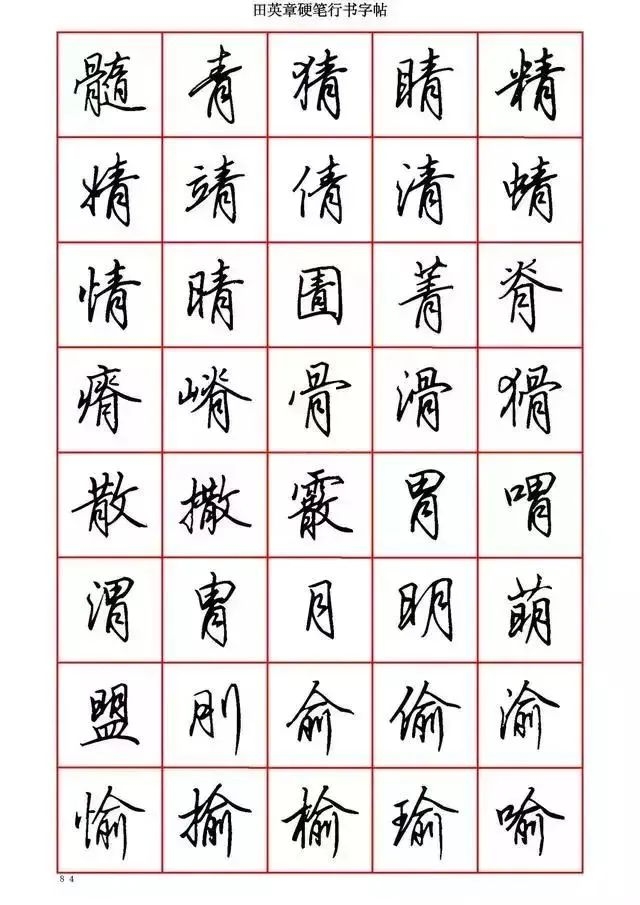 田英章硬笔行书字帖
髓 青 猜 睛 精
婧 靖 倩 清 蜻
情 晴 圊 菁 脊
瘠 嵴 骨 滑 猾
散 撒 霰 胃 喟
渭 胄 月 明 萌
盟 刖 俞 偷 渝
愉 揄 榆 瑜 喻
84